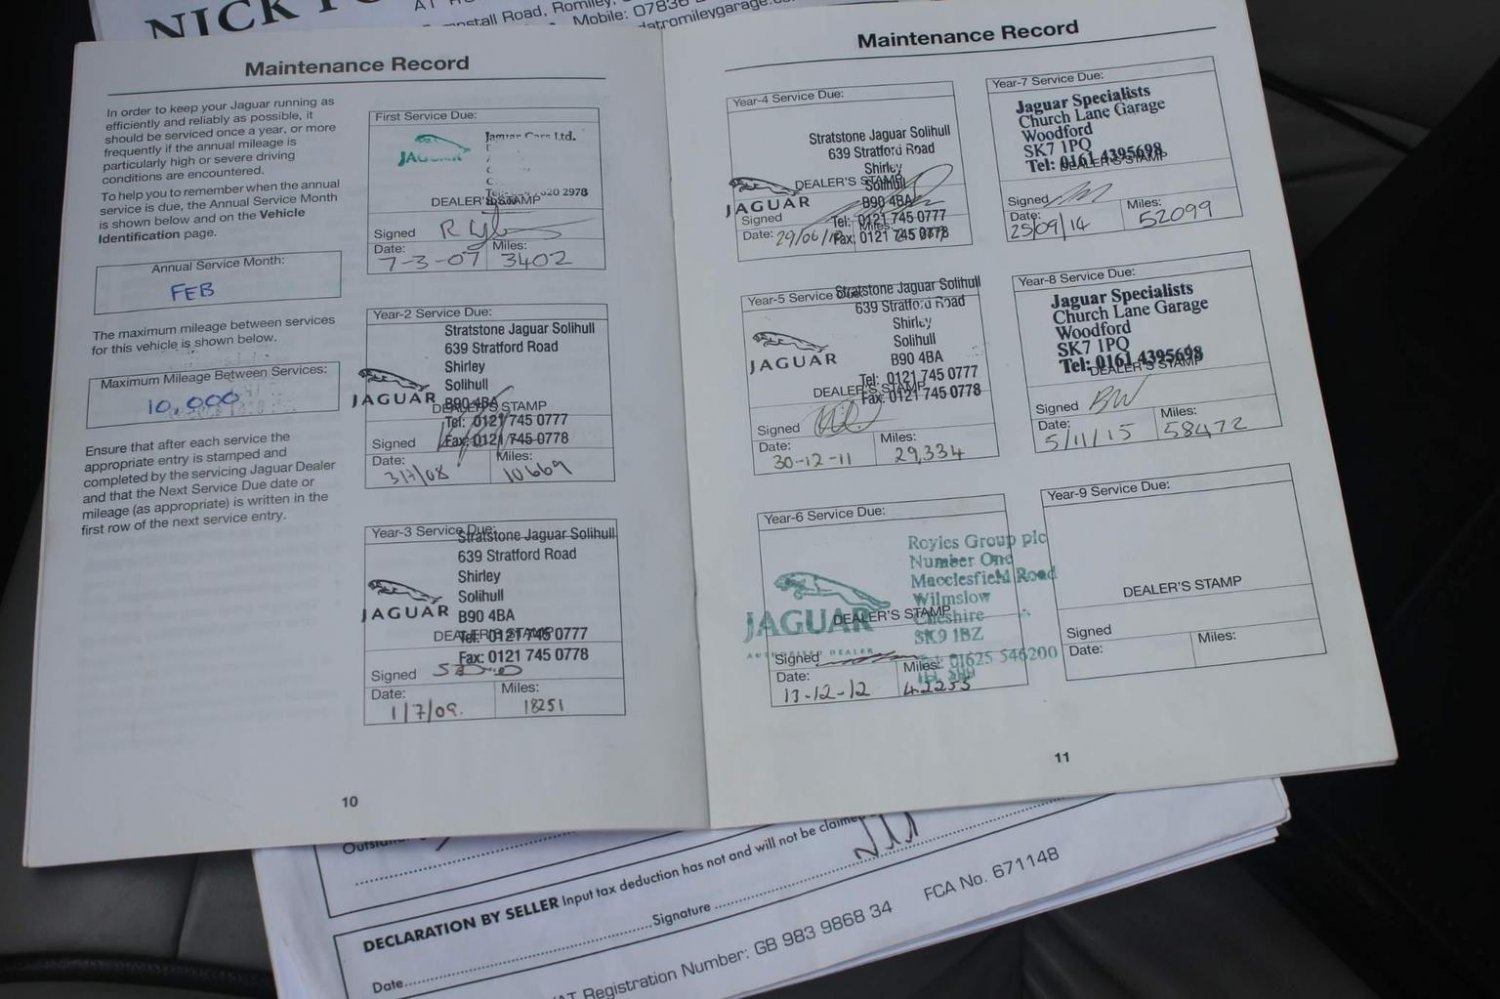 NICK
nstall Road, Romiley,
Mobile: 07836
atromileygarage.co
Maintenance Record
In order to keep your Jaguar running as
efficiently and reliably as possible, it
should be serviced once a year, or more
frequently if the annual mileage is
particularly high or severe driving
conditions are encountered.
To help you to remember when the annual
service is due, the Annual Service Month
is shown below and on the Vehicle
Identification page.
Annual Service Month:
FEB
The maximum mileage between services
for this vehicle is shown below.
Maximum Mileage Between Services:
10,000
Ensure that after each service the
appropriate entry is stamped and
completed by the servicing Jaguar Dealer
and that the Next Service Due date or
mileage (as appropriate) is written in the
first row of the next service entry.
First Service Due:
JAGUAR
Cars Ltd.
020 2978
DEALER'S STAMP
Signed
Date: Miles:
7-3-07 3402
Year-2 Service Due:
Stratstone Jaguar Solihull
639 Stratford Road
Shirley
Solihull
JAGUAR B90 4BA
DEALER'S STAMP
Tel: 0121 745 0777
Signed Fax: 0121 745 0778
Date: Miles:
3/7/08 10669
Year-3 Service Due:
Stratstone Jaguar Solihull
639 Stratford Road
Shirley
Solihull
JAGUAR B90 4BA
DEALER'S STAMP
Tel: 0121 745 0777
Fax: 0121 745 0778
Signed
Date: Miles:
1/7/09. 18251
10
Maintenance Record
Year-4 Service Due:
Stratstone Jaguar Solihull
639 Stratford Road
Shirley
DEALER'S STAMP
Solihull
JAGUAR B90 4BA
Signed Tel: 0121 745 0777
Date: 29/06/ Miles:
Fax: 0121 745 0778
Year-5 Service Due:
Stratstone Jaguar Solihull
639 Stratford Road
Shirley
Solihull
JAGUAR B90 4BA
Tel: 0121 745 0777
DEALER'S STAMP
Fax: 0121 745 0778
Signed
Date: Miles:
30-12-11 29,334
Year-6 Service Due:
Royles Group plc
Number One
Macclesfield Road
Wilmslow
JAGUAR DEALER'S STAMP
Cheshire
SK9 1BZ
AUTHORISED DEALER
Signed Miles: 01625 546200
Date:
13-12-12 42255
Year-7 Service Due:
Jaguar Specialists
Church Lane Garage
Woodford
SK7 1PQ
Tel: 0161 4395698
DEALER'S STAMP
Signed
Date: Miles:
25/09/14 52099
Year-8 Service Due:
Jaguar Specialists
Church Lane Garage
Woodford
SK7 1PQ
Tel: 0161 4395698
DEALER'S STAMP
Signed BW
Date: Miles:
5/11/15 58472
Year-9 Service Due:
DEALER'S STAMP
Signed
Date: Miles:
11
DECLARATION BY SELLER Input tax deduction has not and will not be claimed
Date Signature
Registration Number: GB 983 9868 34 FCA No. 671148